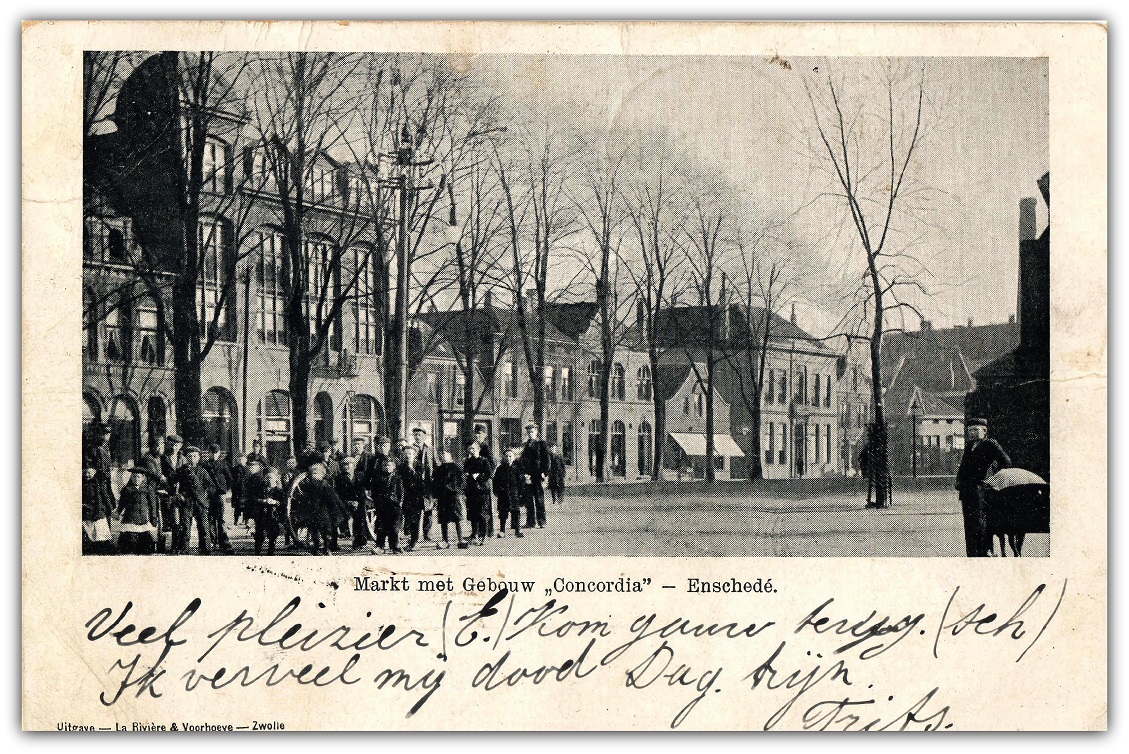 Markt met Gebouw „Concordia” — Enschedé.
Veel pleizier (E.) Kom gauw terug. (sch)
Ik verveel mij dood Dag. trijn.
Frits.
Uitgave — La Rivière & Voorhoeve — Zwolle